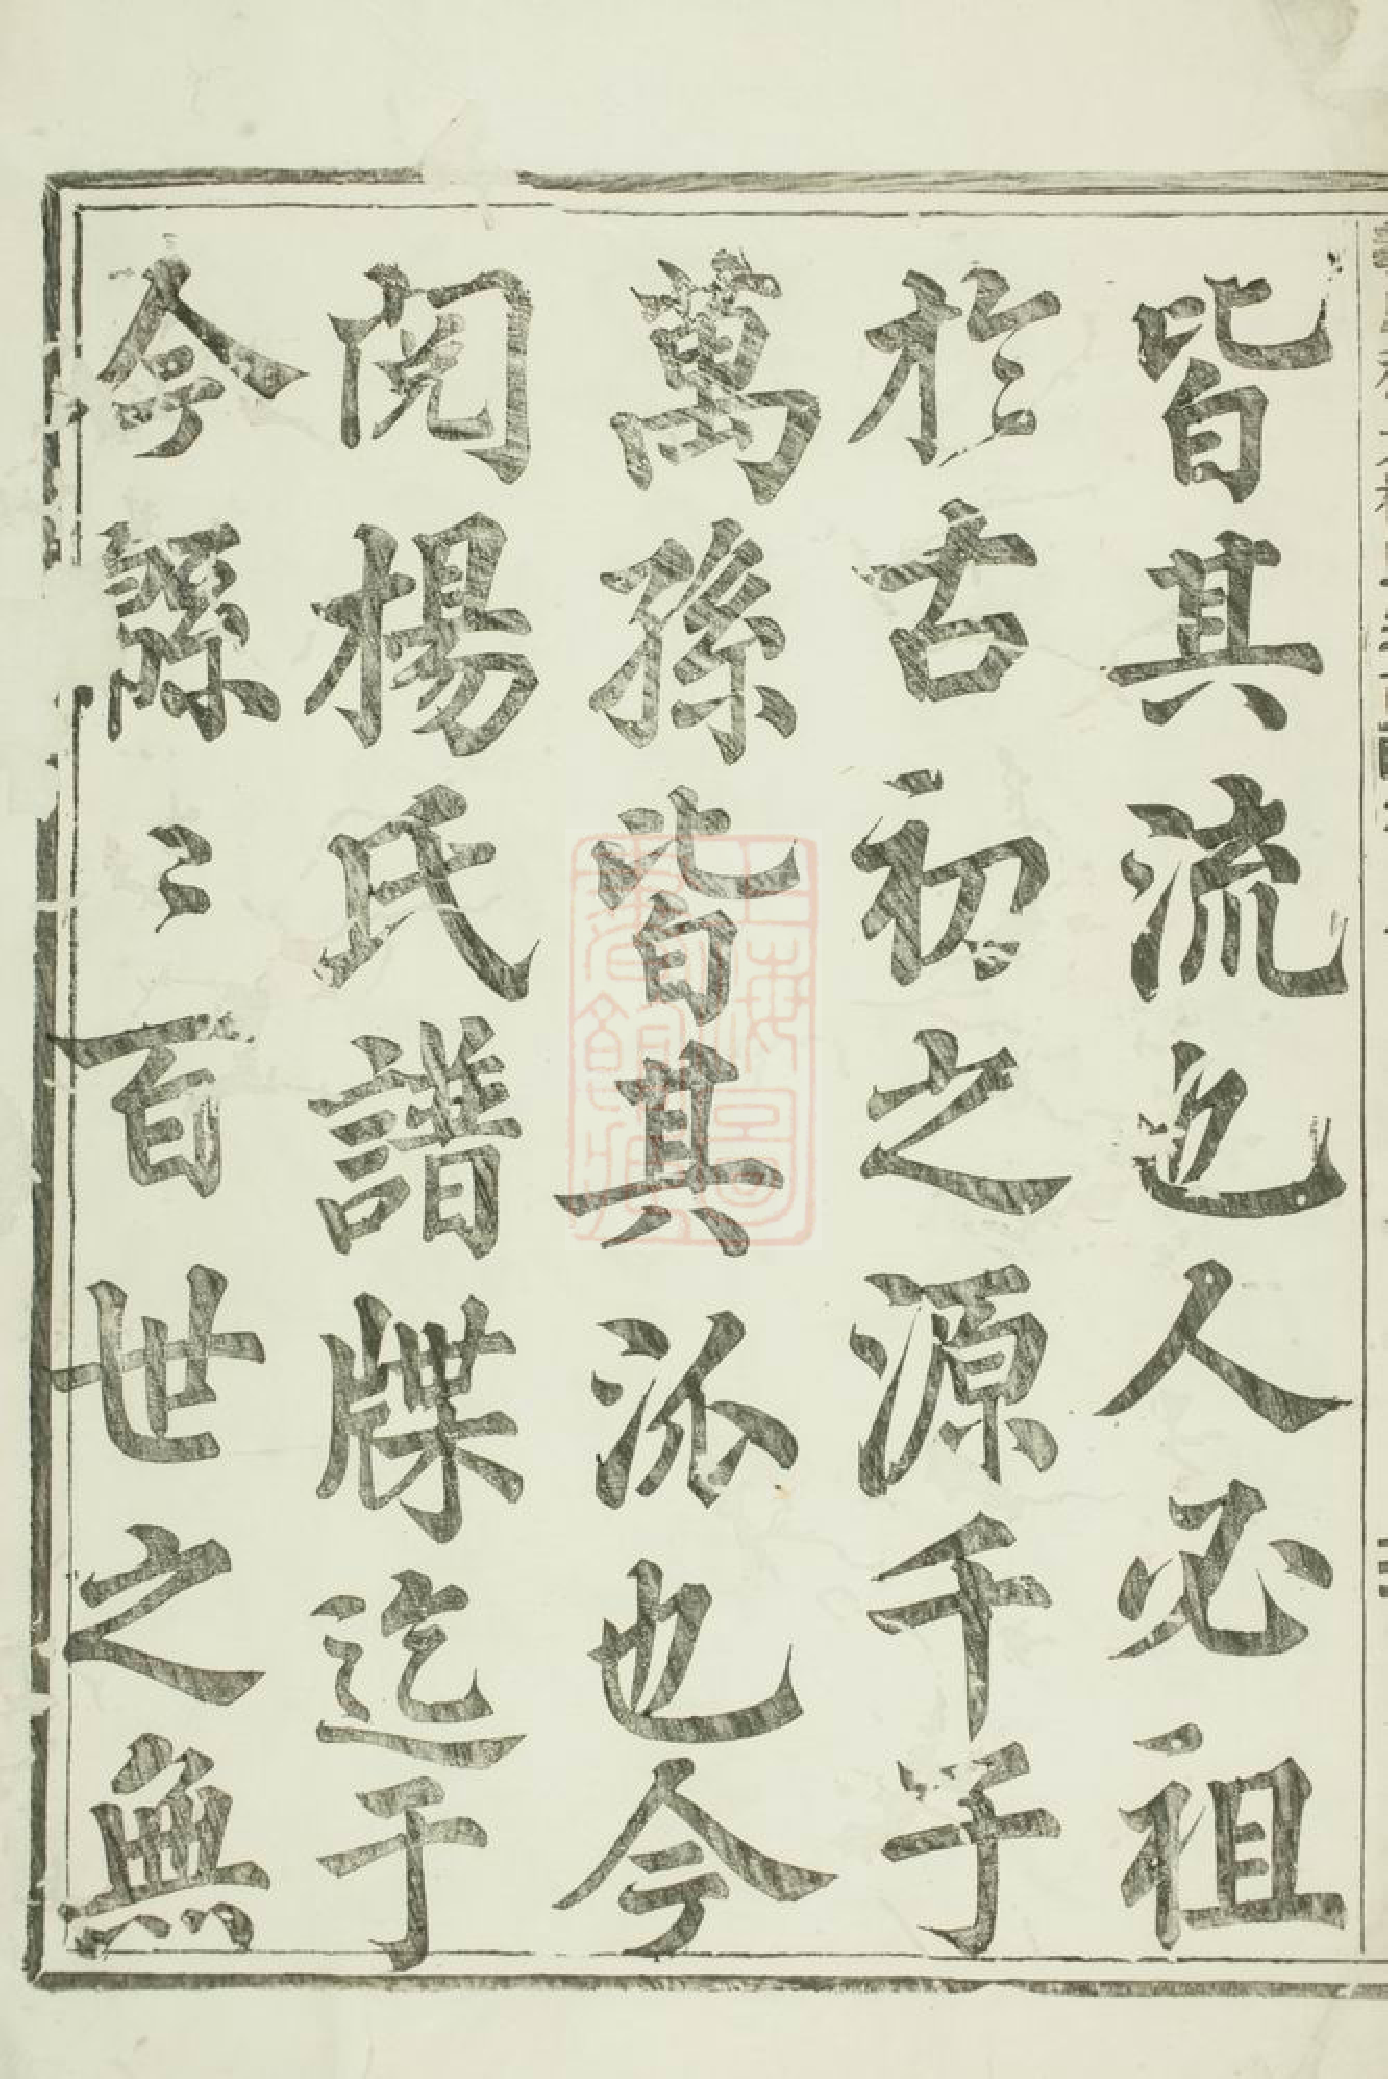 皆其流也人必祖
於古初之源千子
萬孫皆其派也今
閱楊氏譜牒迄于
今緜〻百世之無
上海圖
書館藏